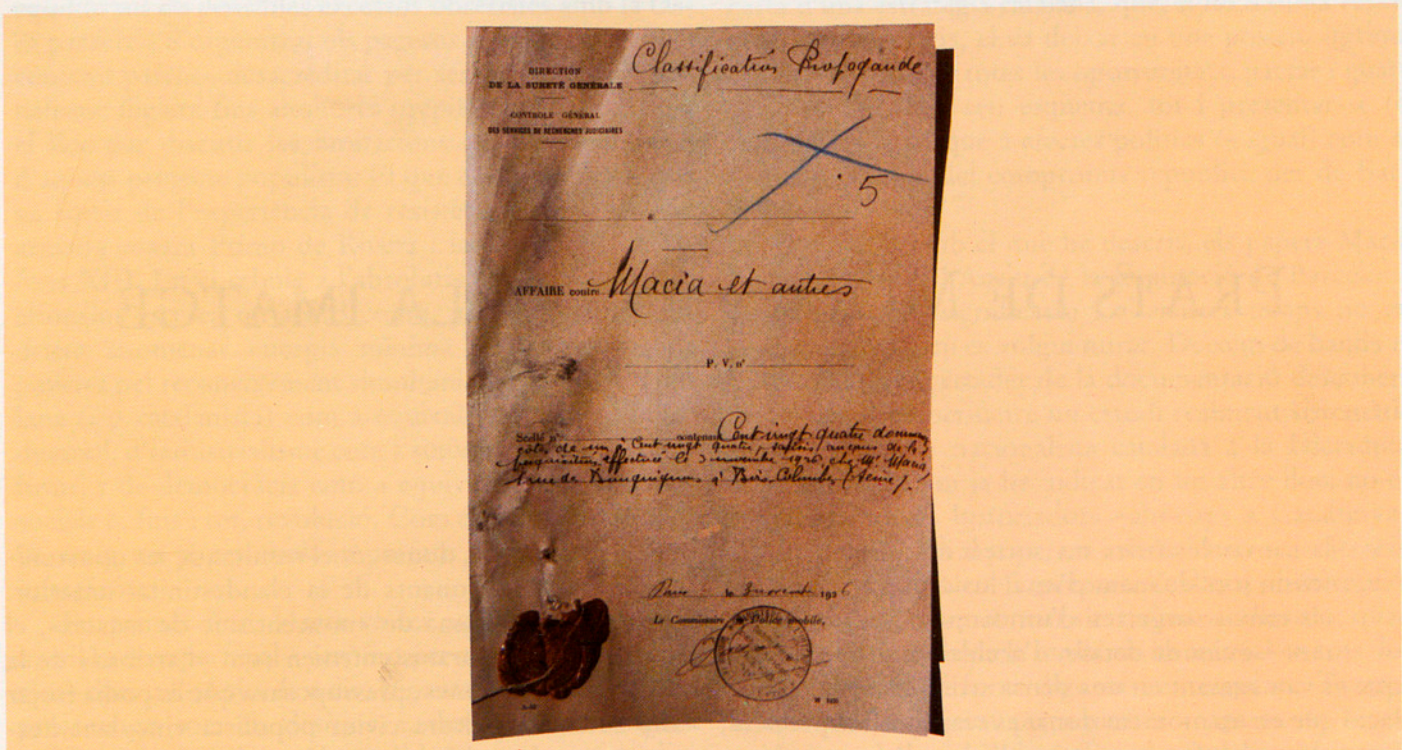 Classification Propagande
DIRECTION
DE LA SURETÉ GÉNÉRALE
CONTROLE GÉNÉRAL
DES SERVICES DE RECHERCHES JUDICIAIRES
5
à
AFFAIRE contre Macia et autres
P. V. n°
Scellé n° contenant Cent vingt quatre docum
cotés de un à Cent vingt quatre, saisis au cours de la
perquisition effectuée le 3 novembre 1926 chez Mr. Macia
rue de Bois-Colombes (Seine).
Paris le 3 novembre 1926
Le Commissaire de Police mobile,